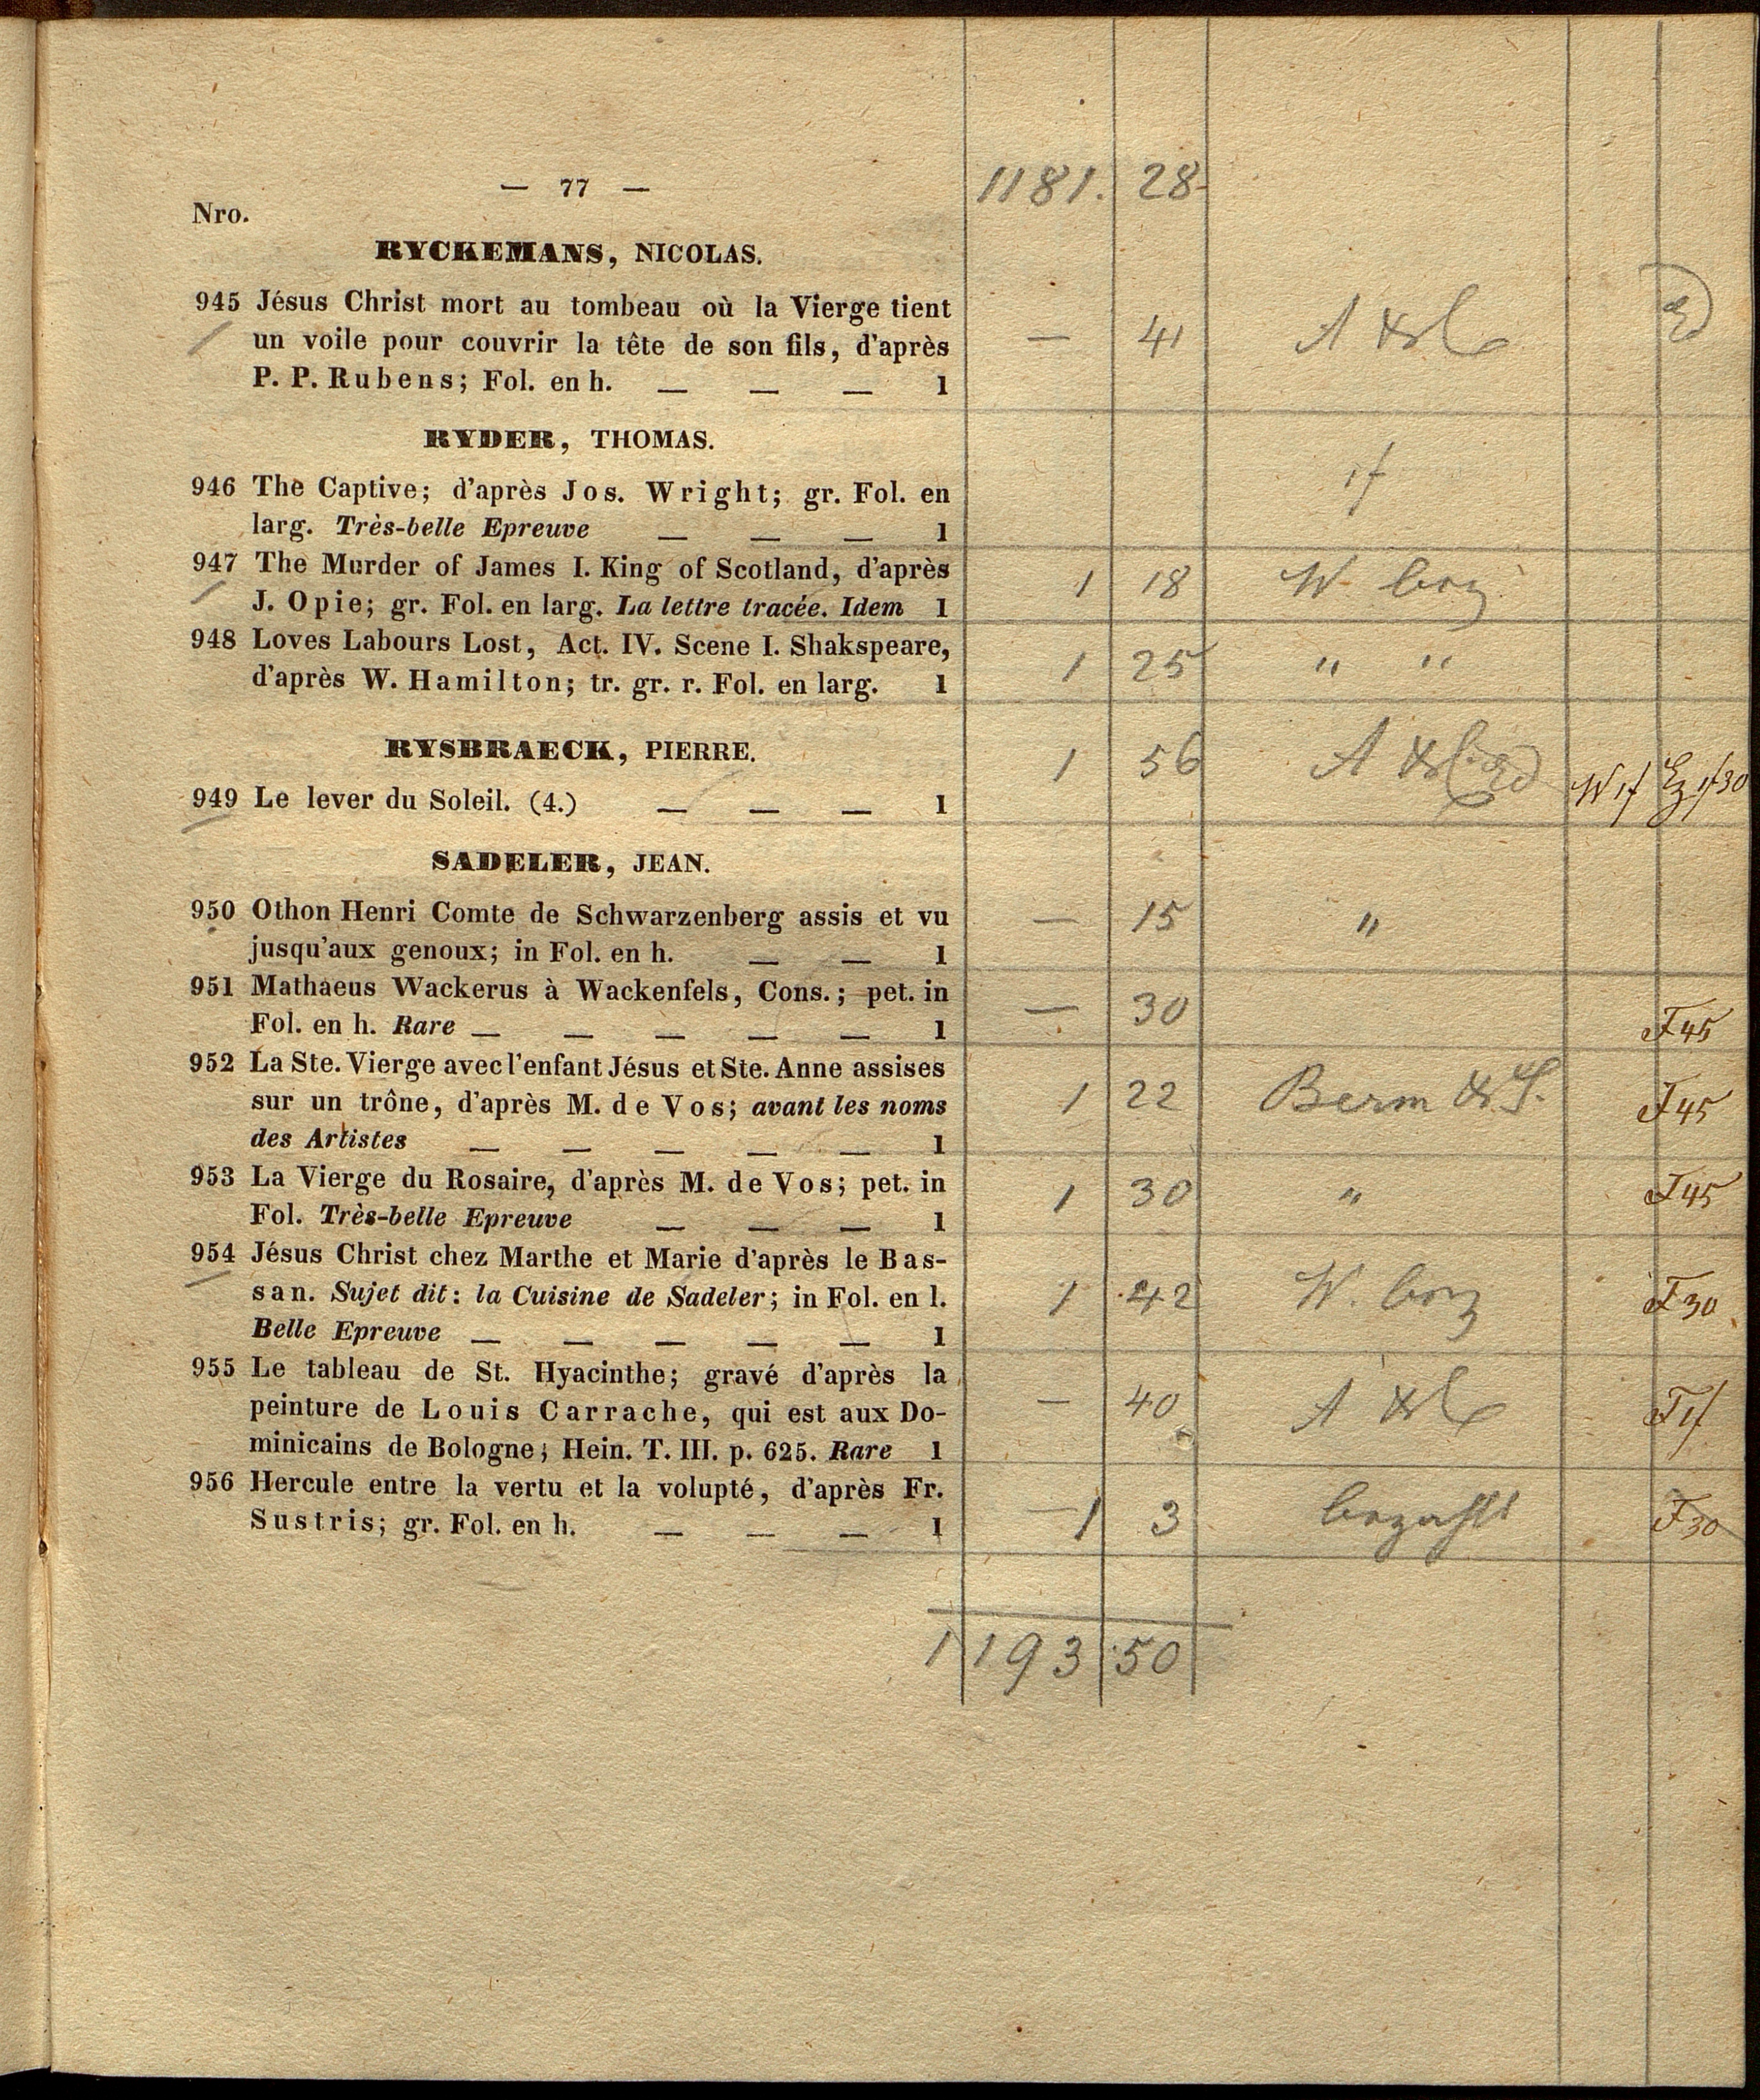 — 77 —
1181. 28
Nro.
RYCKEMANS, NICOLAS.
945 Jésus Christ mort au tombeau où la Vierge tient
un voile pour couvrir la tête de son fils, d'après
— 41
P. P. Rubens; Fol. en h. — — — 1
RYDER, THOMAS.
946 The Captive; d'après Jos. Wright; gr. Fol. en
larg. Très-belle Epreuve — — — 1
947 The Murder of James I. King of Scotland, d'après
1 18 W bez
J. Opie; gr. Fol. en larg. La lettre tracée. Idem 1
948 Loves Labours Lost, Act. IV. Scene I. Shakspeare,
1 25 " "
d'après W. Hamilton; tr. gr. r. Fol. en larg. 1
RYSBRAECK, PIERRE.
1 56
949 Le lever du Soleil. (4.) — — — 1
SADELER, JEAN.
950 Othon Henri Comte de Schwarzenberg assis et vu
— 15 "
jusqu'aux genoux; in Fol. en h. — — 1
951 Mathaeus Wackerus à Wackenfels, Cons.; pet. in
— 30 F 45
Fol. en h. Rare — — — — — 1
952 La Ste. Vierge avec l'enfant Jésus et Ste. Anne assises
sur un trône, d'après M. de Vos; avant les noms
1 22 Berm & S. F 45
des Artistes — — — — — 1
953 La Vierge du Rosaire, d'après M. de Vos; pet. in
1 30 " F 45
Fol. Très-belle Epreuve — — — 1
954 Jésus Christ chez Marthe et Marie d'après le Bas-
san. Sujet dit: la Cuisine de Sadeler; in Fol. en l.
1 42 W. bez F 30
Belle Epreuve — — — — — 1
955 Le tableau de St. Hyacinthe; gravé d'après la
peinture de Louis Carrache, qui est aux Do-
— 40
minicains de Bologne; Hein. T. III. p. 625. Rare 1
956 Hercule entre la vertu et la volupté, d'après Fr.
Sustris; gr. Fol. en h. — — — 1
— 1 3 bezahlt F 30
1193 50